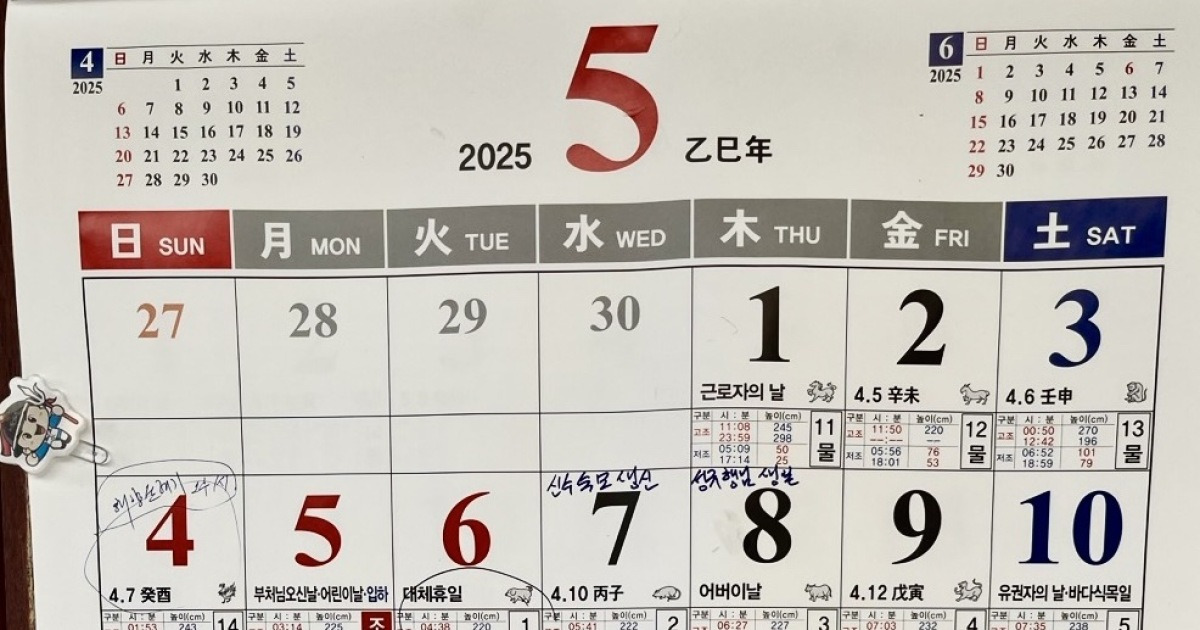 4 日 月 火 水 木 金 土
2025 1 2 3 4 5
6 7 8 9 10 11 12
13 14 15 16 17 18 19
20 21 22 23 24 25 26
27 28 29 30
2025 5 乙巳年
6 日 月 火 水 木 金 土
2025 1 2 3 4 5 6 7
8 9 10 11 12 13 14
15 16 17 18 19 20 21
22 23 24 25 26 27 28
29 30
日 SUN 月 MON 火 TUE 水 WED 木 THU 金 FRI 土 SAT
27 28 29 30 1 2 3
근로자의 날 4.5 辛未 4.6 壬申
구분 시 : 분 높이(cm)
고조 11:08 245
23:59 298
저조 05:09 50
17:14 25
11물
구분 시 : 분 높이(cm)
고조 11:50 220
--:-- --
저조 05:56 76
18:01 53
12물
구분 시 : 분 높이(cm)
고조 00:50 270
12:42 196
저조 06:52 101
18:59 79
13물
숙모 생신 생일
4 5 6 7 8 9 10
4.7 癸酉 부처님오신날·어린이날·입하 대체휴일 4.10 丙子 어버이날 4.12 戊寅 유권자의 날·바다식목일
구분 시 : 분 높이(cm) 14
01:53 243
구분 시 : 분 높이(cm) 조
03:14 225
구분 시 : 분 높이(cm) 1
04:38 220
구분 시 : 분 높이(cm) 2
05:41 222
구분 시 : 분 높이(cm) 3
06:27 227
구분 시 : 분 높이(cm) 4
07:03 232
구분 시 : 분 높이(cm) 5
07:35 238